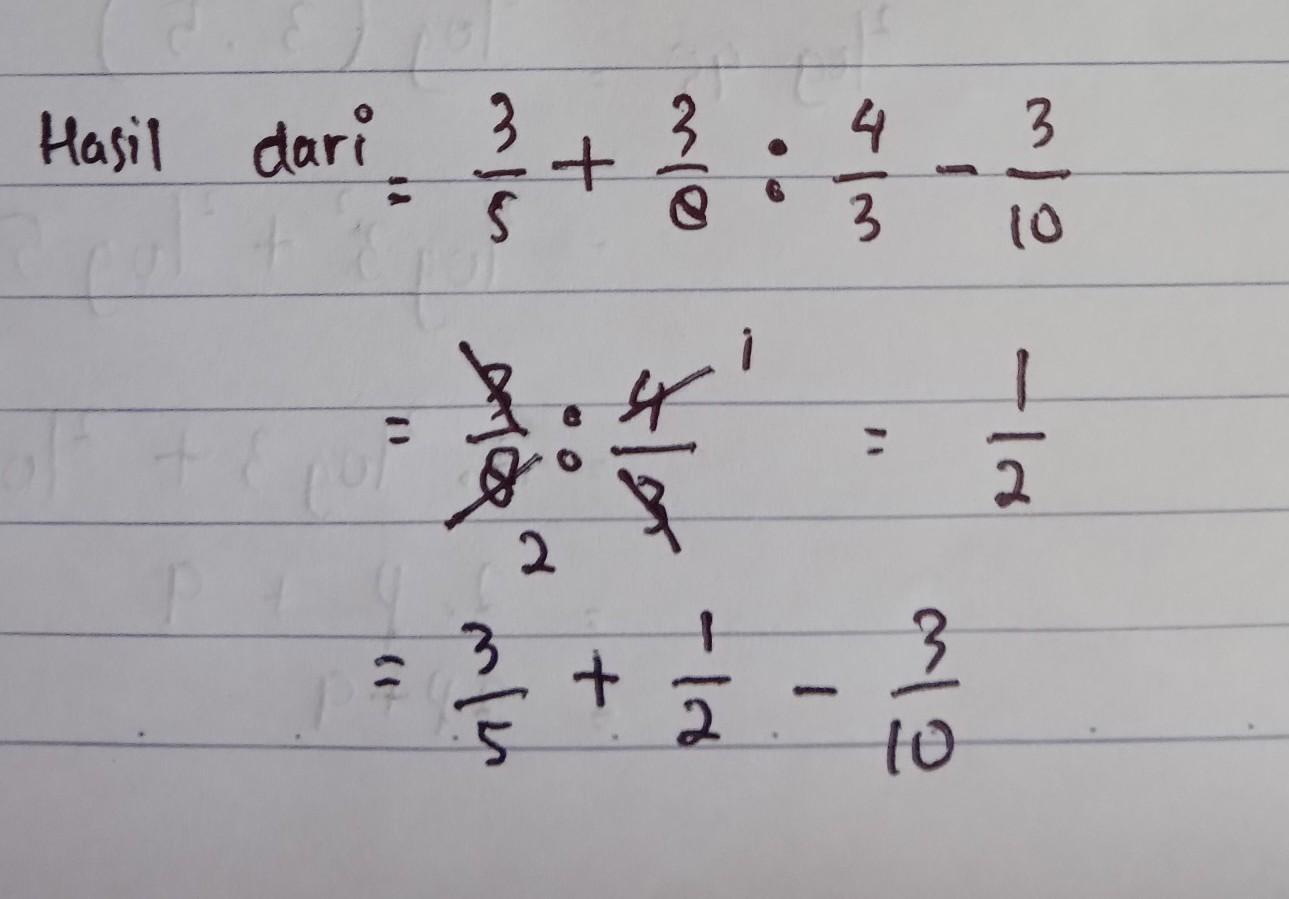 Hasil dari = 3/5 + 3/8 : 4/3 - 3/10
= 3/8 : 4/3 = 1/2
1
2
= 3/5 + 1/2 - 3/10